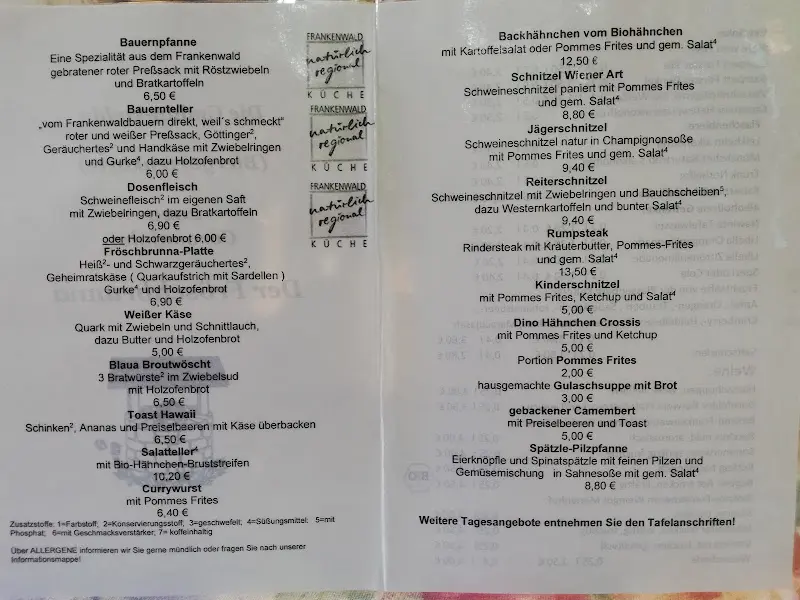 Bauernpfanne
Eine Spezialität aus dem Frankenwald
gebratener roter Preßsack mit Röstzwiebeln
und Bratkartoffeln
6,50 €
Bauernteller
„vom Frankenwaldbauern direkt, weil´s schmeckt"
roter und weißer Preßsack, Göttinger²,
Geräuchertes² und Handkäse mit Zwiebelringen
und Gurke⁴, dazu Holzofenbrot
6,00 €
Dosenfleisch
Schweinefleisch² im eigenen Saft
mit Zwiebelringen, dazu Bratkartoffeln
6,90 €
oder Holzofenbrot 6,00 €
Fröschbrunna-Platte
Heiß²- und Schwarzgeräuchertes²,
Geheimratskäse ( Quarkaufstrich mit Sardellen )
Gurke⁴ und Holzofenbrot
6,90 €
Weißer Käse
Quark mit Zwiebeln und Schnittlauch,
dazu Butter und Holzofenbrot
5,00 €
Blaua Broutwöscht
3 Bratwürste² im Zwiebelsud
mit Holzofenbrot
6,50 €
Toast Hawaii
Schinken², Ananas und Preiselbeeren mit Käse überbacken
6,50 €
Salatteller⁴
mit Bio-Hähnchen-Bruststreifen
10,20 €
Currywurst
mit Pommes Frites
6,40 €
Zusatzstoffe: 1=Farbstoff; 2=Konservierungsstoff; 3=geschwefelt; 4=Süßungsmittel; 5=mit
Phosphat; 6=mit Geschmacksverstärker; 7= koffeinhaltig
Über ALLERGENE informieren wir Sie gerne mündlich oder fragen Sie nach unserer
Informationsmappe!
FRANKENWALD
natürlich
regional
KÜCHE
FRANKENWALD
natürlich
regional
KÜCHE
FRANKENWALD
natürlich
regional
KÜCHE
Backhähnchen vom Biohähnchen
mit Kartoffelsalat oder Pommes Frites und gem. Salat⁴
12,50 €
Schnitzel Wiener Art
Schweineschnitzel paniert mit Pommes Frites
und gem. Salat⁴
8,80 €
Jägerschnitzel
Schweineschnitzel natur in Champignonsoße
mit Pommes Frites und gem. Salat⁴
9,40 €
Reiterschnitzel
Schweineschnitzel mit Zwiebelringen und Bauchscheiben⁵,
dazu Westernkartoffeln und bunter Salat⁴
9,40 €
Rumpsteak
Rindersteak mit Kräuterbutter, Pommes-Frites
und gem. Salat⁴
13,50 €
Kinderschnitzel
mit Pommes Frites, Ketchup und Salat⁴
5,00 €
Dino Hähnchen Crossis
mit Pommes Frites und Ketchup
5,00 €
Portion Pommes Frites
2,00 €
hausgemachte Gulaschsuppe mit Brot
3,00 €
gebackener Camembert
mit Preiselbeeren und Toast
5,00 €
Spätzle-Pilzpfanne
Eierknöpfle und Spinatspätzle mit feinen Pilzen und
Gemüsemischung in Sahnesoße mit gem. Salat⁴
8,80 €
Weitere Tagesangebote entnehmen Sie den Tafelanschriften!